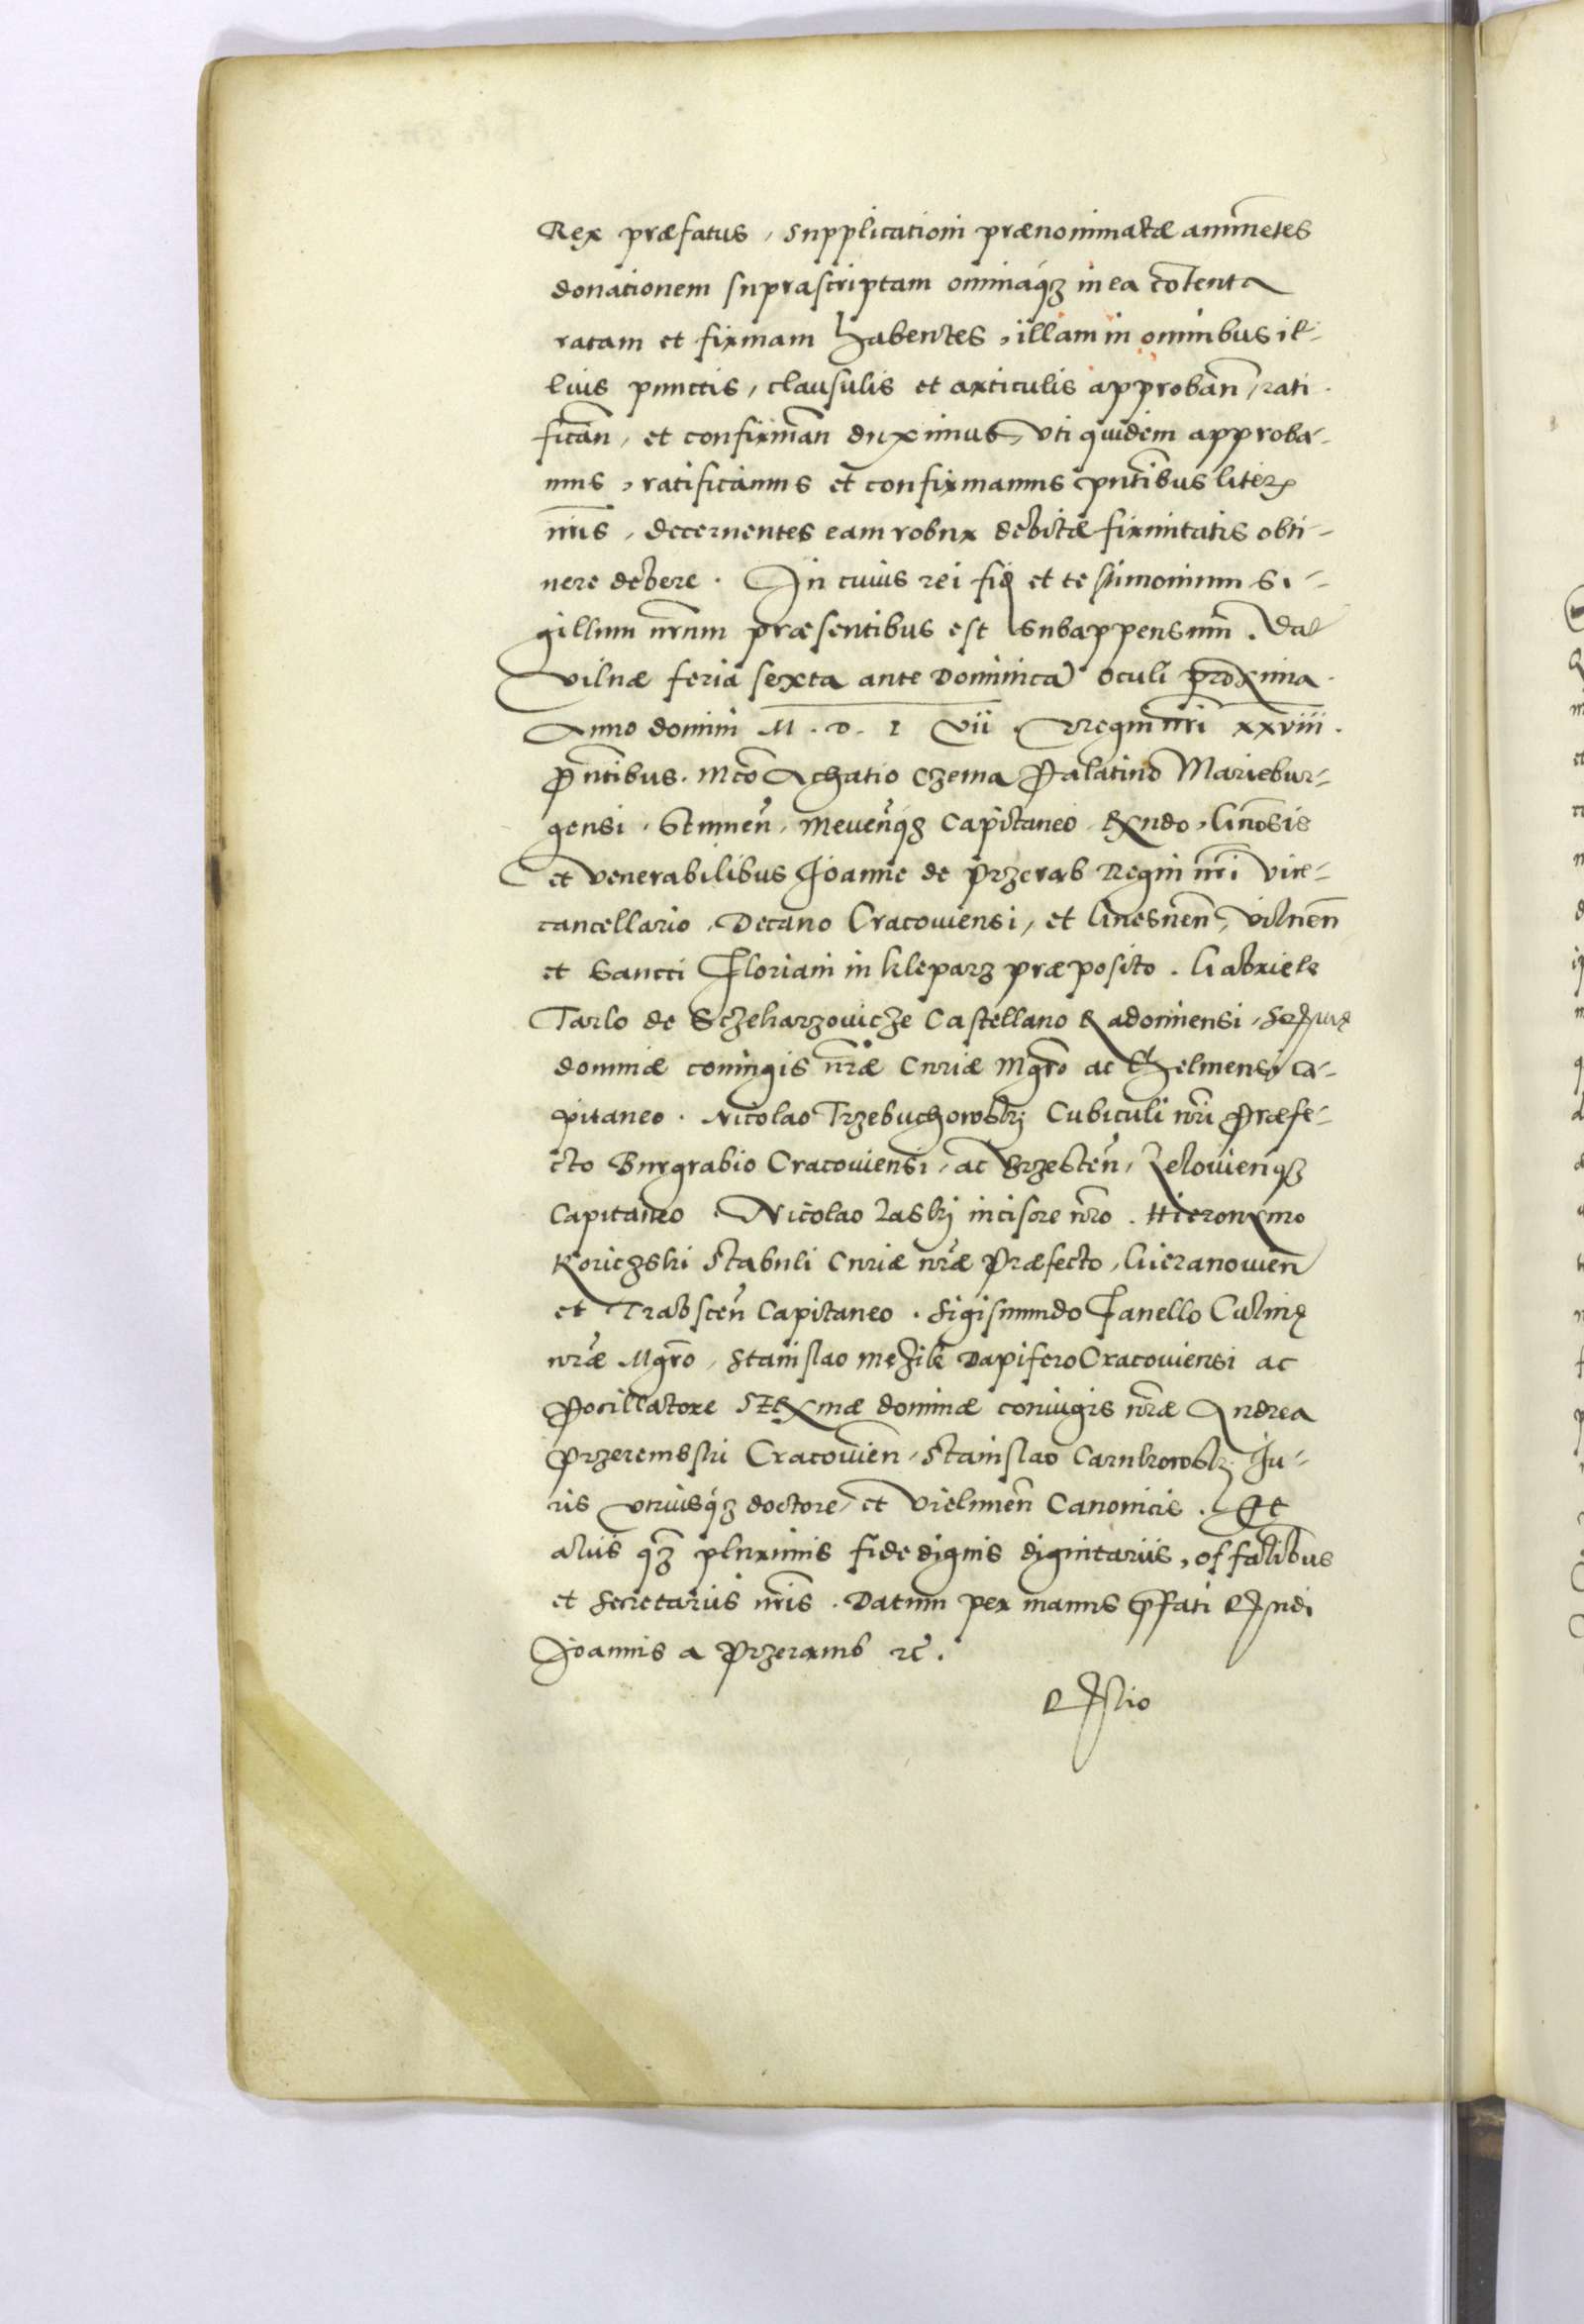 Rex præfatus, supplicationi prænominatæ annuẽtes
donationem suprascriptam omniaq́ꝫ in ea cõtenta
ratam et firmam habentes, illam in omnibus il-
lius punctis, clausulis et articulis approbañ, rati
ficañ, et confirmañ duximus, vti quidem approba-
mus, ratificamus et confirmamus pñtibus literꝭ
nris, decernentes eam robur debitæ firmitatis obti-
nere debere. In cuius rei fidē et testimonium Si-
gillum nrum præsentibus est subappensum. Dat
Vilnæ feria sexta ante Dominicā oculi proxima.
Anno domini M. D. L Vii. Regni nri xxviii.
Pñtibus. Mco Achatio Czema Palatino Mariebur-
gensi. Stumeñ, Meueñqꝫ Capitaneo Rndo, Gñosis
et Venerabilibus Joanne de Przerab Regni nri Vice-
cancellario, Decano Cracouiensi, et Gnesneñ, Vilneñ
et Sancti Floriani in kleparz præposito. Gabriele
Tarlo de Sczekarzouicze Castellano Radomiensi,
dominæ coniugis nræ Curiæ Mgro ac Chelmensi Ca-
pitaneo. Nicolao Trzebuchowskÿ Cubiculi nri Præfe-
cto Burgrabio Cracouiensi, ac Brzesteñ, Zelouieñqꝫ
Capitaneo. Nicolao Laskÿ incisore nro. Hieronymo
Koriczski Stabuli Curiæ nræ Præfecto, Gieranouieñ
et Trabsceñ Capitaneo. Sigismundo Fanello Culinę
nræ Mgro, Stanislao mezik Dapifero Cracouiensi ac
Pocillatore SRmæ dominæ coniugis nræ Andrea
Przerembski Cracouieñ, Stanislao Carnkowskÿ Ju-
ris vtriusq́ꝫ doctore, et Vielumeñ Canonicis. Et
aliis qꝫ plurimis fide dignis dignitariis, offalibus
et Secretariis nris. Datum per manus pfati Rndi
Joannis a Przeramb ꝛc̃.